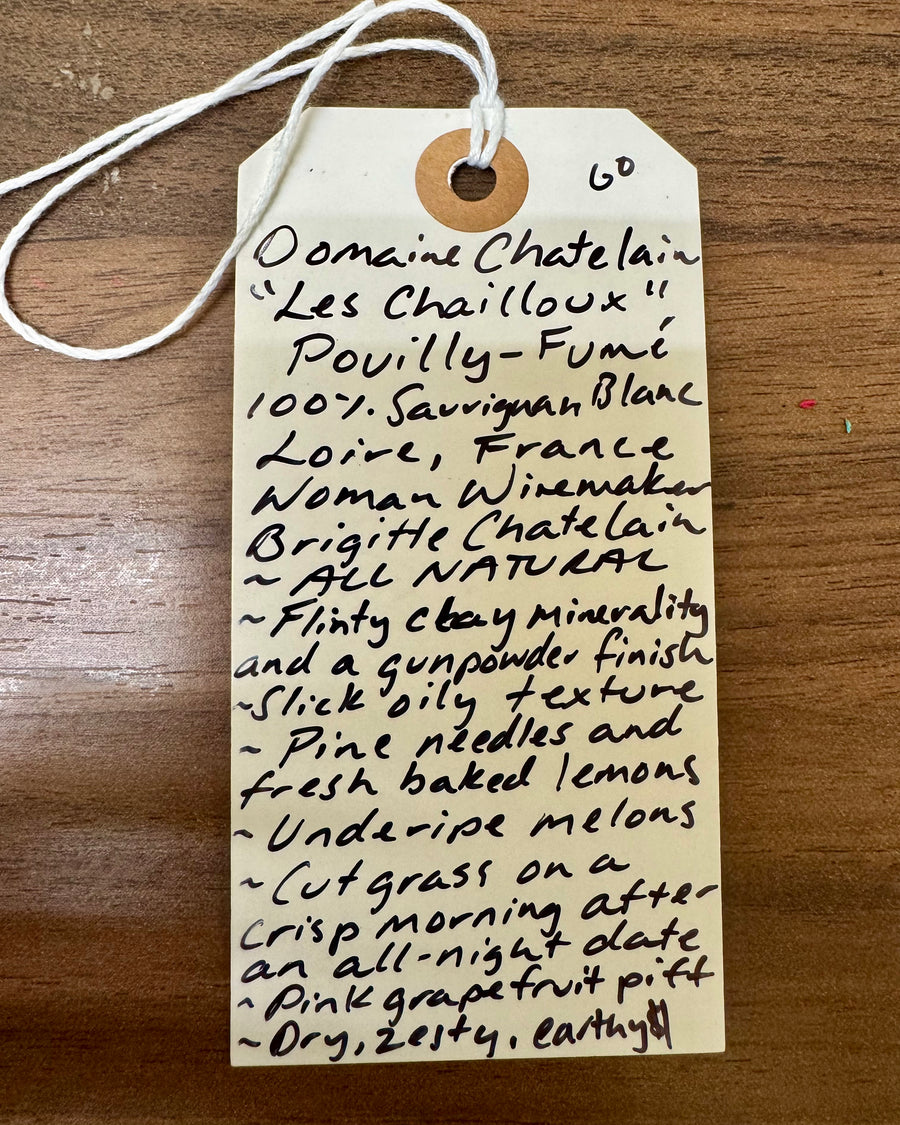 60
Domaine Chatelain
"Les Chailloux"
Pouilly-Fumé
100% Sauvignan Blanc
Loire, France
Woman Winemaker
Brigitte Chatelain
~ ALL NATURAL
~Flinty clay minerality
and a gunpowder finish
~Slick oily texture
~ Pine needles and
fresh baked lemons
~Underipe melons
~Cut grass on a
crisp morning after
an all-night date
~Pink grapefruit piff
~Dry, zesty, earthy